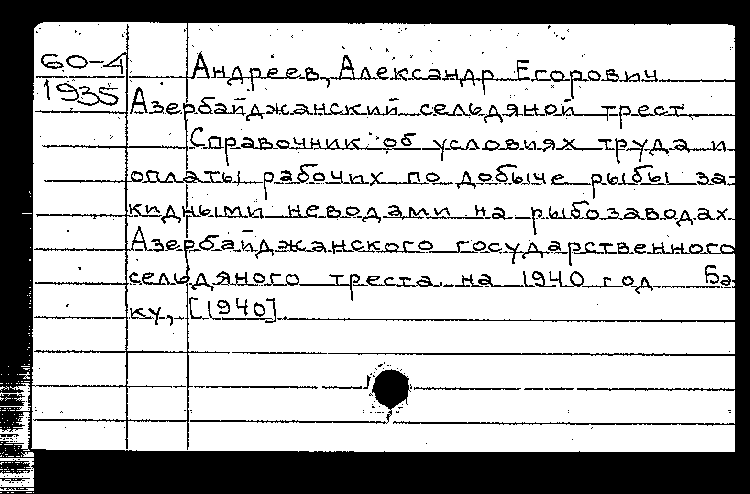 60-4
1935
Андреев, Александр Егорович
Азербайджанский сельдяной трест.
Справочник об условиях труда и
оплаты рабочих по добыче рыбы за-
кидными неводами на рыбозаводах
Азербайджанского государственного
сельдяного треста на 1940 год Ба-
ку, [1940].